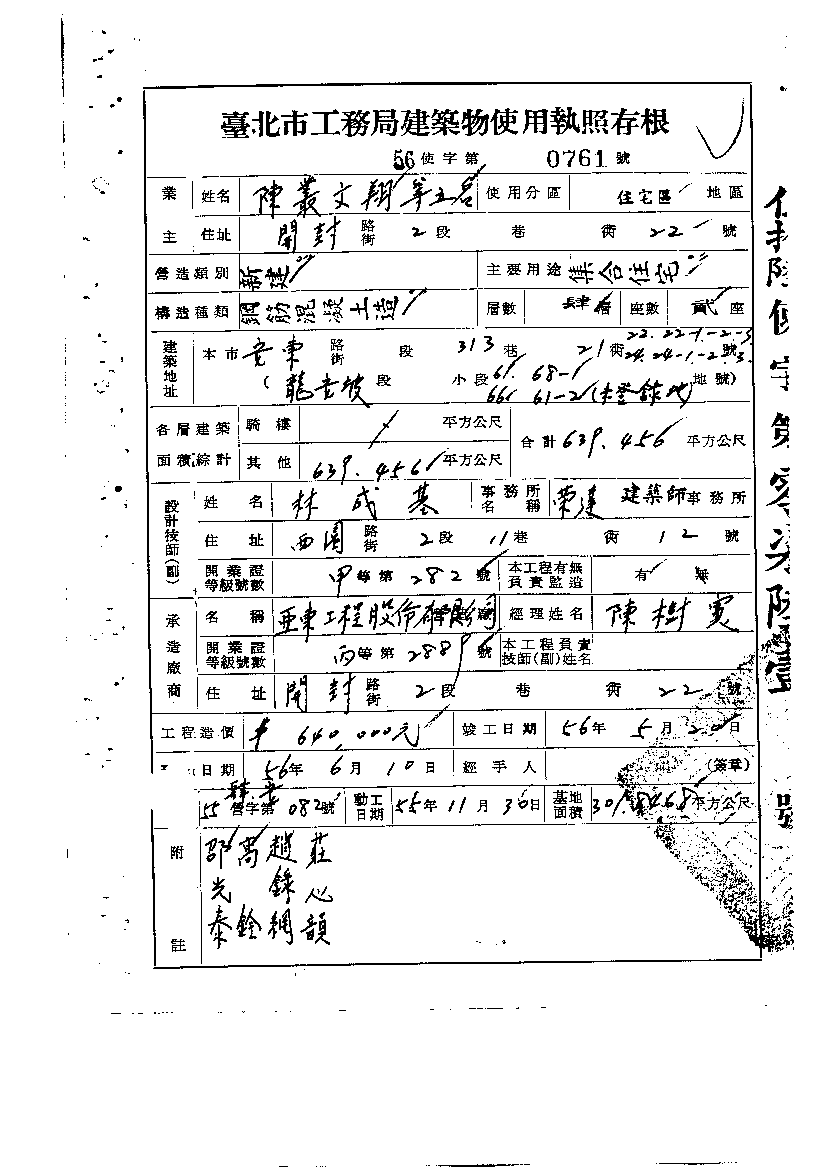 臺北市工務局建築物使用執照存根
56使字第 0761 號
業主 姓名 陳叢文翔等五名 使用分區 住宅區 地區
住址 開封 路街 2段 巷 衖 22 號
營造類別 新建 主要用途 集合住宅
構造種類 鋼筋混凝土造 層數 肆層 座數 貳座
建築地址 本市 安東 路街 段 313巷 21衖 22.22-1.-2-3 24.24-1-2.3. 號
(龍安坡 段 小段 61. 68-1 66 61-2(未登錄地) 地號)
各層建築面積綜計 騎樓 平方公尺 合計 639.456 平方公尺
其他 639.456 平方公尺
設計技師(副) 姓名 林成基 事務所名稱 榮達 建築師事務所
住址 西園 路街 2段 11巷 衖 12 號
開業證等級號數 甲等第 282 號 本工程有無負責監造 有 無
承造廠商 名稱 亞東工程股份有限公司 經理姓名 陳樹寞
開業證等級號數 丙等第 2889 號 本工程負責技師(副)姓名
住址 開封 路街 2段 巷 衖 22 號
工程造價 640,000元 竣工日期 56年 5月 20日
日期 56年 6月 10日 經手人 (簽章)
55 營字第 082 號 動工日期 55年 11月 30日 基地面積 301.8468 平方公尺
附註
邵萬趙莊
光 錄心
泰銓綱韻
使字第零柒陸壹
號